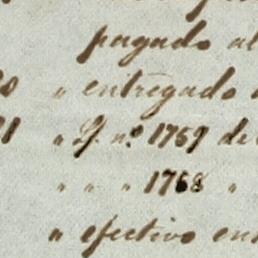 pagado al
0 " entregado
21 " L. nº 1769 de
" " " 1768 "
" efectivo en